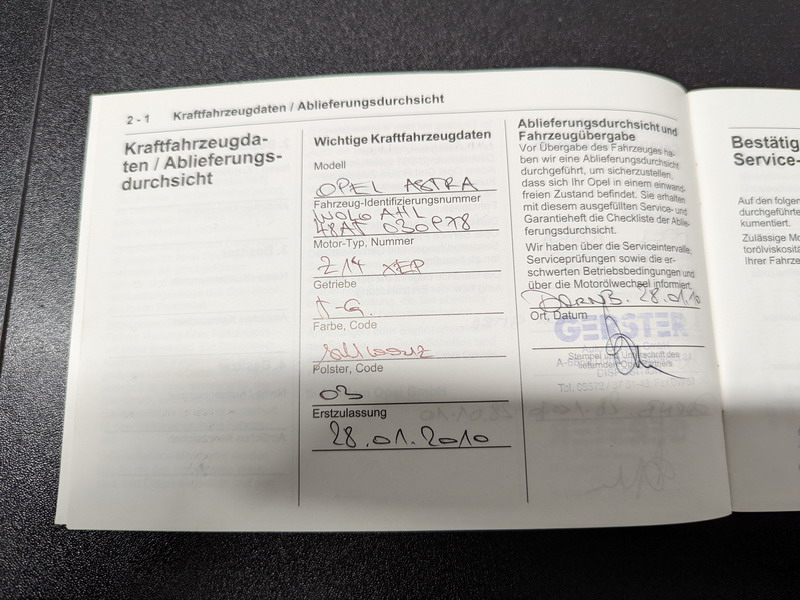 2 - 1 Kraftfahrzeugdaten / Ablieferungsdurchsicht
Kraftfahrzeugda-
ten / Ablieferungs-
durchsicht
Wichtige Kraftfahrzeugdaten
Modell
OPEL ASTRA
Fahrzeug-Identifizierungsnummer
W0L0 AHL
48AG 030978
Motor-Typ, Nummer
Z14 XEP
Getriebe
5-G.
Farbe, Code
schwarz
Polster, Code
03
Erstzulassung
28.01.2010
Ablieferungsdurchsicht und
Fahrzeugübergabe
Vor Übergabe des Fahrzeuges ha-
ben wir eine Ablieferungsdurchsicht
durchgeführt, um sicherzustellen,
dass sich Ihr Opel in einem einwand-
freien Zustand befindet. Sie erhalten
mit diesem ausgefüllten Service- und
Garantieheft die Checkliste der Ablie-
ferungsdurchsicht.
Wir haben über die Serviceintervalle,
Serviceprüfungen sowie die er-
schwerten Betriebsbedingungen und
über die Motorölwechsel informiert.
DORNB. 28.01.10
Ort, Datum
GERSTER
Stempel und Unterschrift des
liefernden Opel Partners
Tel. 05572 / 37 51-43, Fax
Bestätig
Service-
Auf den folgen
durchgeführte
kumentiert.
Zulässige Mo
torölviskositä
Ihrer Fahrze